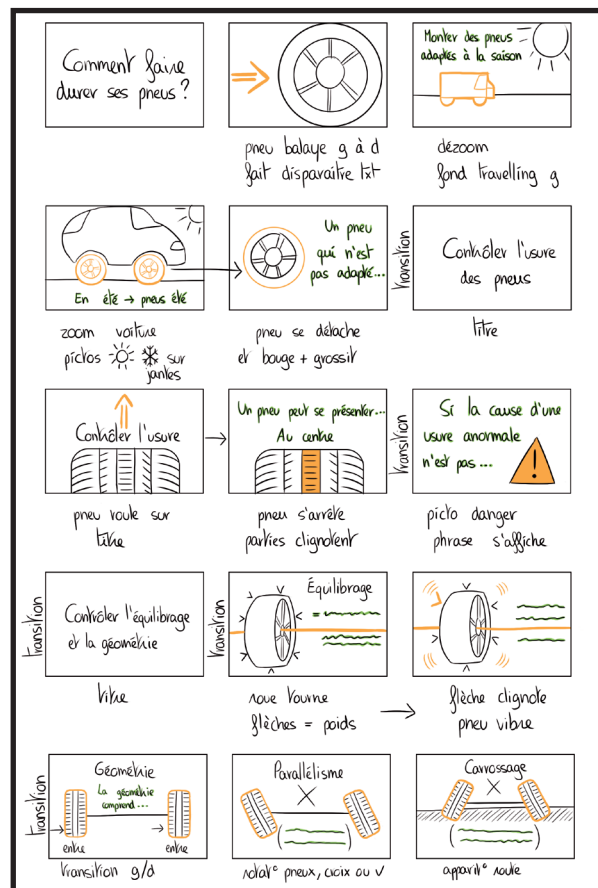 Comment faire
durer ses pneus ?
pneu balaye g à d
fait disparaitre txt
Monter des pneus
adaptés à la saison
dézoom
fond travelling g
En été → pneus été
zoom voiture
pictos sur
jantes
Un pneu
qui n'est
pas adapté...
pneu se détache
et bouge + grossit
Transition
Contrôler l'usure
des pneus
titre
Contrôler l'usure
pneu roule sur
titre
Un pneu peut se présenter...
Au centre
pneu s'arrête
parties clignotent
Transition
Si la cause d'une
usure anormale
n'est pas ...
!
picto danger
phrase s'affiche
Transition
Contrôler l'équilibrage
et la géométrie
titre
Transition
Équilibrage
=
roue tourne
flèches = poids
flèche clignote
pneu vibre
Transition
Géométrie
La géométrie
comprend...
entre
entre
transition g/d
Parallélisme
rotat° pneux, croix ou v
Carrossage
apparit° route